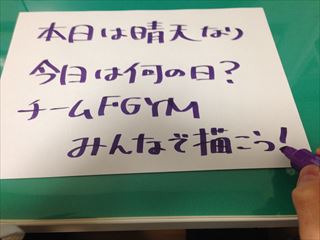 本日は晴天なり
今日は何の日?
チームFGYM
みんなで描こう!